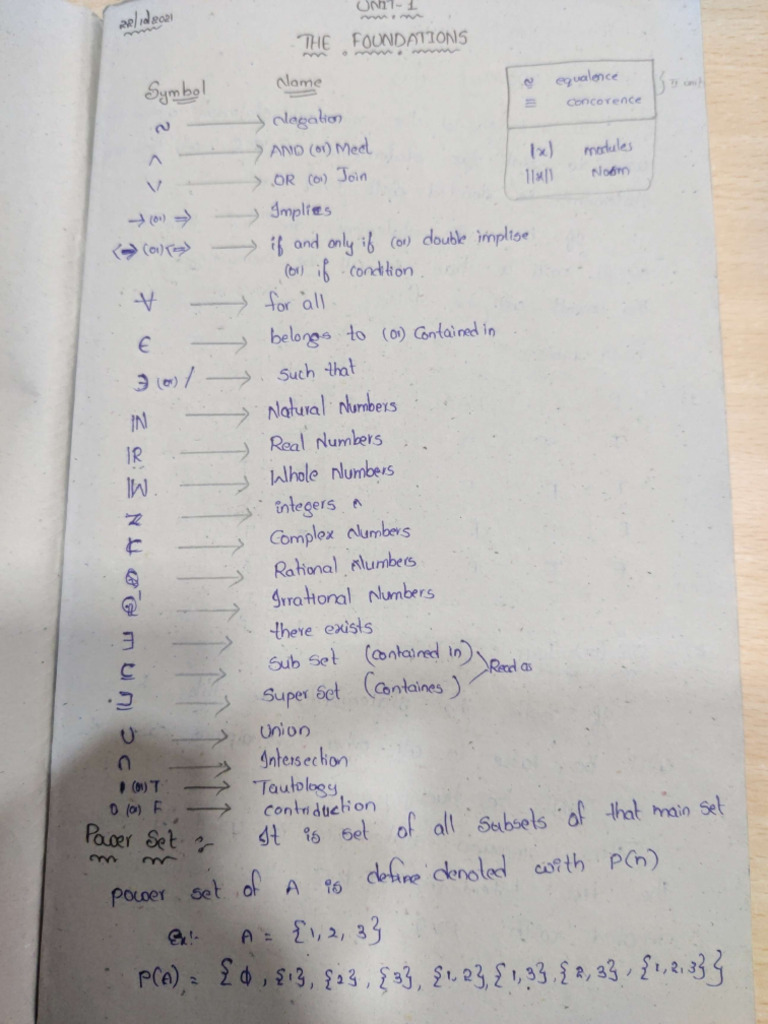 UNIT-1
THE FOUNDATIONS
Symbol Name
~ → Negation
∧ → AND (or) Meet
∨ → OR (or) Join
→ (or) ⇒ → Implies
↔ (or) ⇔ → if and only if (or) double implise
(or) if condition
∀ → for all
∈ → belongs to (or) Contained in
∋ (or) / → such that
ℕ → Natural Numbers
ℝ → Real Numbers
𝕎 → Whole Numbers
ℤ → integers
ℂ → Complex Numbers
ℚ → Rational Numbers
ℚ̄ → Irrational Numbers
∃ → there exists
⊆ → Sub set (contained in)
⊇ → Super set (Containes) Read as
∪ → Union
∩ → Intersection
1 (or) T → Tautology
0 (or) F → contriduction
≈ equalence
≡ concorence
|x| modules
||x|| Noom
Power Set :- It is set of all Subsets of that main set
power set of A is define denoted with P(n)
Ex:- A = {1, 2, 3}
P(A) = {ϕ, {1}, {2}, {3}, {1,2}, {1,3}, {2,3}, {1,2,3}}